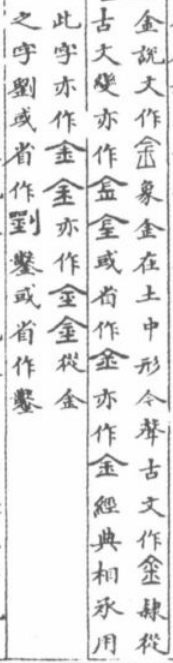 金說文作金象金在土中形今聲古文作金隸從
古文變亦作金金或省作金亦作金經典相承用
此字亦作金金亦作金金從金
之字劉或省作劉鑿或省作鑿